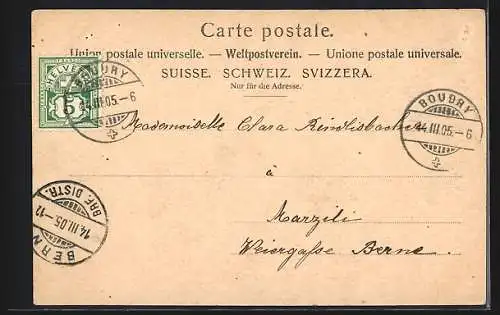 Carte postale.
Union postale universelle. — Weltpostverein. — Unione postale universale.
SUISSE. SCHWEIZ. SVIZZERA.
Nur für die Adresse.
HELVETIA
5
BOUDRY
14.III.05.–6
BOUDRY
14.III.05.–6
Mademoiselle Clara Rindlisbacher
à
Marzili
Weiergasse Berne.
BERN
14.III.05.–12
BRF. DISTR.